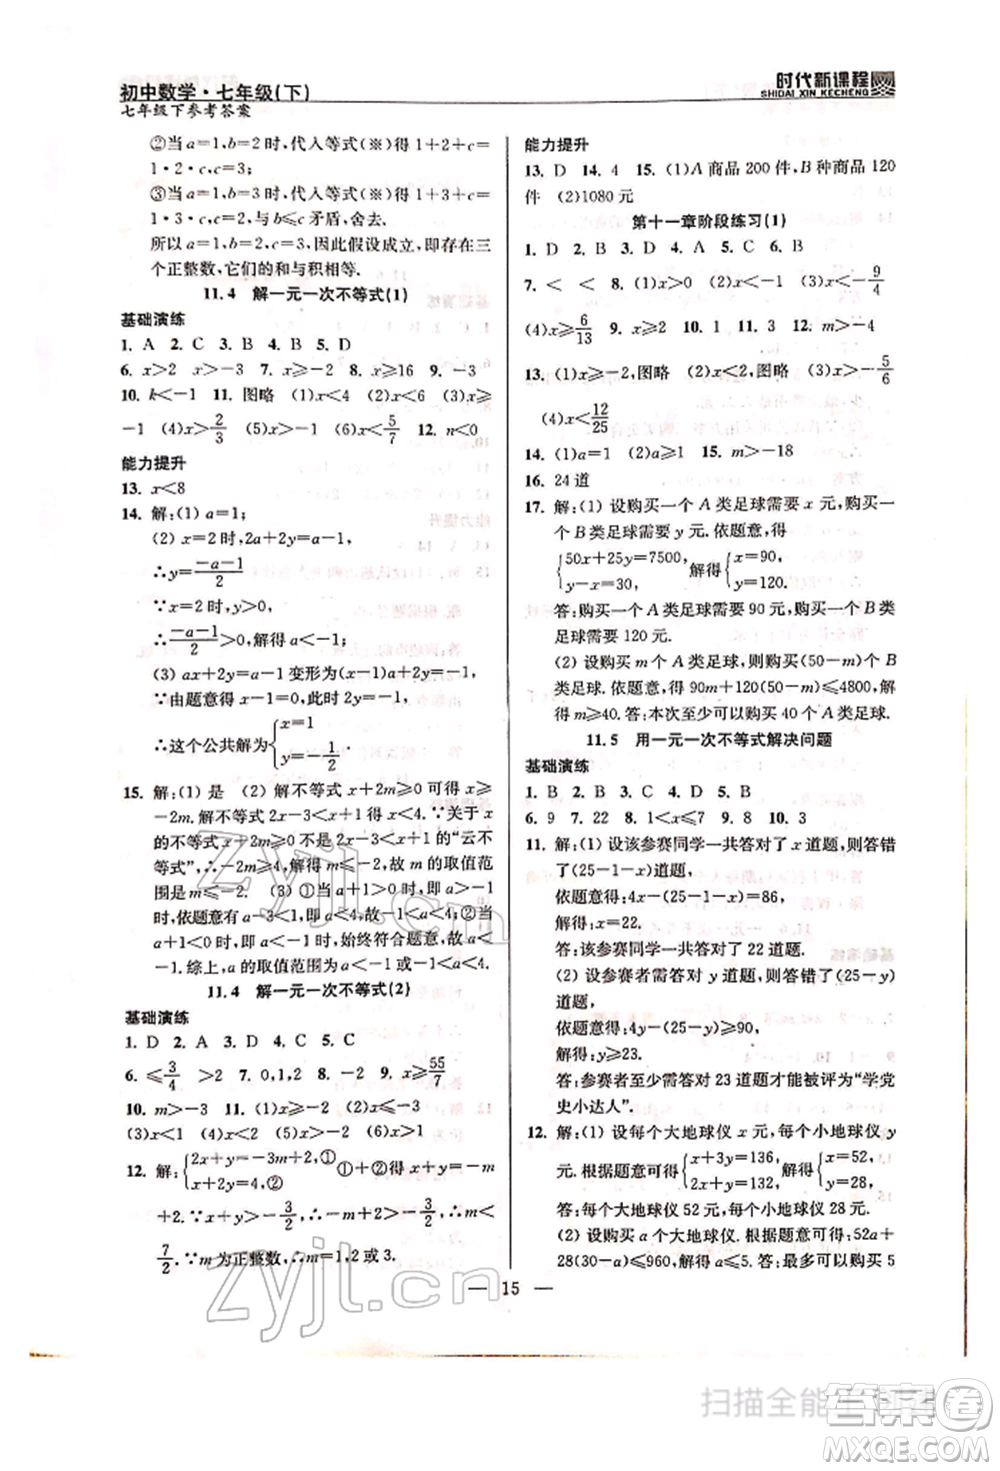 初中数学·七年级(下)
七年级下参考答案
时代新课程
SHIDAI XIN KECHENG
②当 a=1,b=2 时,代入等式(※)得 1+2+c=
1·2·c,c=3;
③当 a=1,b=3 时,代入等式(※)得 1+3+c=
1·3·c,c=2,与 b≤c 矛盾,舍去.
所以 a=1,b=2,c=3,因此假设成立,即存在三
个正整数,它们的和与积相等.
11.4 解一元一次不等式(1)
基础演练
1. A 2. C 3. B 4. B 5. D
6. x>2 x>-2 7. x≥-2 8. x≥16 9. -3
10. k<-1 11. 图略 (1)x<4 (2)x>3 (3)x≥
-1 (4)x>2/3 (5)x<-9 (6)x<5/7 12. n<0
能力提升
13. x<8
14. 解:(1) a=1;
(2) x=2 时,2a+2y=a-1,
∴y=(-a-1)/2
∵x=2 时,y>0,
∴(-a-1)/2>0,解得 a<-1;
(3) ax+2y=a-1 变形为(x-1)a+2y=-1,
∵由题意得 x-1=0,此时 2y=-1,
∴这个公共解为{x=1
y=-1/2
15. 解:(1) 是 (2) 解不等式 x+2m≥0 得 x≥
-2m. 解不等式 2x-3<x+1 得 x<4. ∵关于 x
的不等式 x+2m≥0 不是 2x-3<x+1 的“云不
等式”,∴-2m≥4,解得 m≤-2,故 m 的取值范
围是 m≤-2. (3) ①当 a+1>0,即 a>-1 时,
依题意有 a-3<1,即 a<4,故-1<a<4;②当
a+1<0,即 a<-1 时,始终符合题意,故 a<
-1.综上,a 的取值范围为 a<-1 或-1<a<4.
11.4 解一元一次不等式(2)
基础演练
1. D 2. A 3. D 4. C 5. C
6. ≤3/4 >2 7. 0,1,2 8. -2 9. x≥55/7
10. m>-3 11. (1)x≥-1 (2)x≤-3
(3)x<1 (4)x<-1 (5)x>-1 (6)x>1
12. 解:{2x+y=-3m+2,①
x+2y=4,②
①+②得 x+y=-m
+2. ∵x+y>-3/2,∴-m+2>-3/2,∴m<
7/2. ∵m 为正整数,∴m=1,2 或 3.
能力提升
13. D 14. 4 15. (1)A 商品 200 件,B 种商品 120
件 (2)1080 元
第十一章阶段练习(1)
1. D 2. B 3. D 4. A 5. C 6. B
7. < < 8. (1)x>4 (2)x<-1 (3)x<-9/4
(4)x≥6/13 9. x≥-6 10. 1 11. 3 12. m>-4
13. (1)x≥-2,图略 (2)x<2,图略 (3)x>-5/6
(4)x<12/25
14. (1)a=1 (2)a≥1 15. m>-18
16. 24 道
17. 解:(1) 设购买一个 A 类足球需要 x 元,购买
一个 B 类足球需要 y 元. 依题意,得
{50x+25y=7500,
y=x+30,
解得{x=90,
y=120.
答:购买一个 A 类足球需要 90 元,购买一个 B 类
足球需要 120 元.
(2) 设购买 m 个 A 类足球,则购买(50-m)个 B
类足球. 依题意,得 90m+120(50-m)≤4800,解
得 m≥40. 答:本次至少可以购买 40 个 A 类足球.
11.5 用一元一次不等式解决问题
基础演练
1. B 2. B 3. C 4. D 5. B
6. 9 7. 22 8. 1<x≤7 9. 8 10. 3
11. 解:(1) 设该参赛同学一共答对了 x 道题,则
答错了(25-1-x)道题,
依题意得:4x-(25-1-x)=86,
解得:x=22.
答:该参赛同学一共答对了 22 道题.
(2) 设参赛者需答对 y 道题,则答错了(25-y)
道题,
依题意得:4y-(25-y)≥90,
解得:y≥23.
答:参赛者至少需答对 23 道题才能被评为“学党
史小达人”.
12. 解:(1) 设每个大地球仪 x 元,每个小地球仪 y
元. 根据题意可得{x+3y=136,
2x+y=132,
解得{x=52,
y=28.
答:每个大地球仪 52 元,每个小地球仪 28 元.
(2) 设购买 a 个大地球仪,根据题意可得:52a+
28(30-a)≤960,解得 a≤5. 答:最多可以购买 5
— 15 —
Zyjl.cn
zyjl.cn
答案圈
MXQE.COM